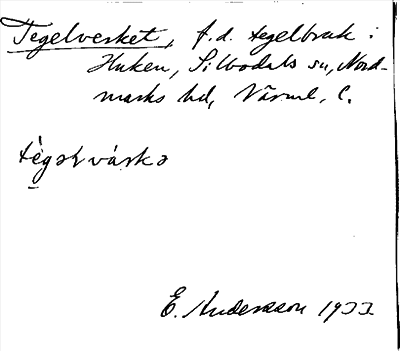 Tegelverket, f.d. tegelbruk i
Huken, Silbodals sn, Nord-
marks hd, Värml. l.
tègəɫvárkə
E. Andersson 1933